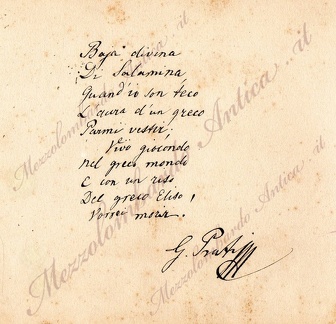 Baja divina
Di Salamina
Quand'io son teco
L'aura d'un greco
Parmi vestir;
Vivo giocondo
Nel greco mondo
E con un riso
Del greco Eliso,
Vorrei morir.
G. Prati
Mezzolombardo Antica .it
Mezzolombardo Antica .it
Mezzolombardo Antica .it